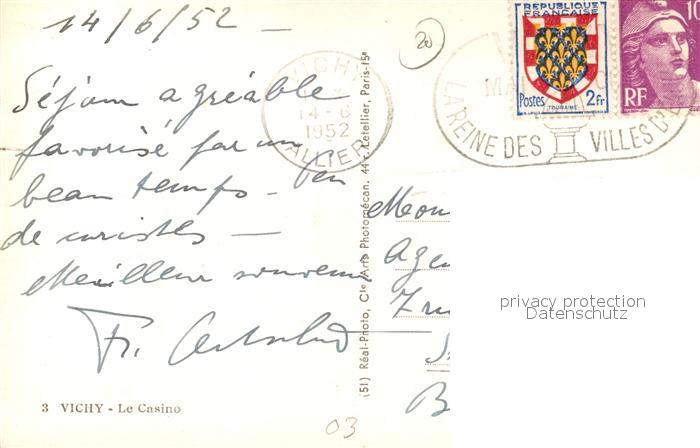 14/6/52 -
Séjour agréable
favorisé par un
beau temps - Peu
de curistes —
Meilleur souvenir
Fr.
3 VICHY - Le Casino
(51) Réal-Photo, Cie Arts Photomécan. 44 r. Letellier, Paris-15e
20
VICHY
14-6
1952
ALLIER
LA REINE DES VILLES D'
REPUBLIQUE
FRANÇAISE
Postes 2Fr
TOURAINE
10
RF
03
privacy protection
Datenschutz